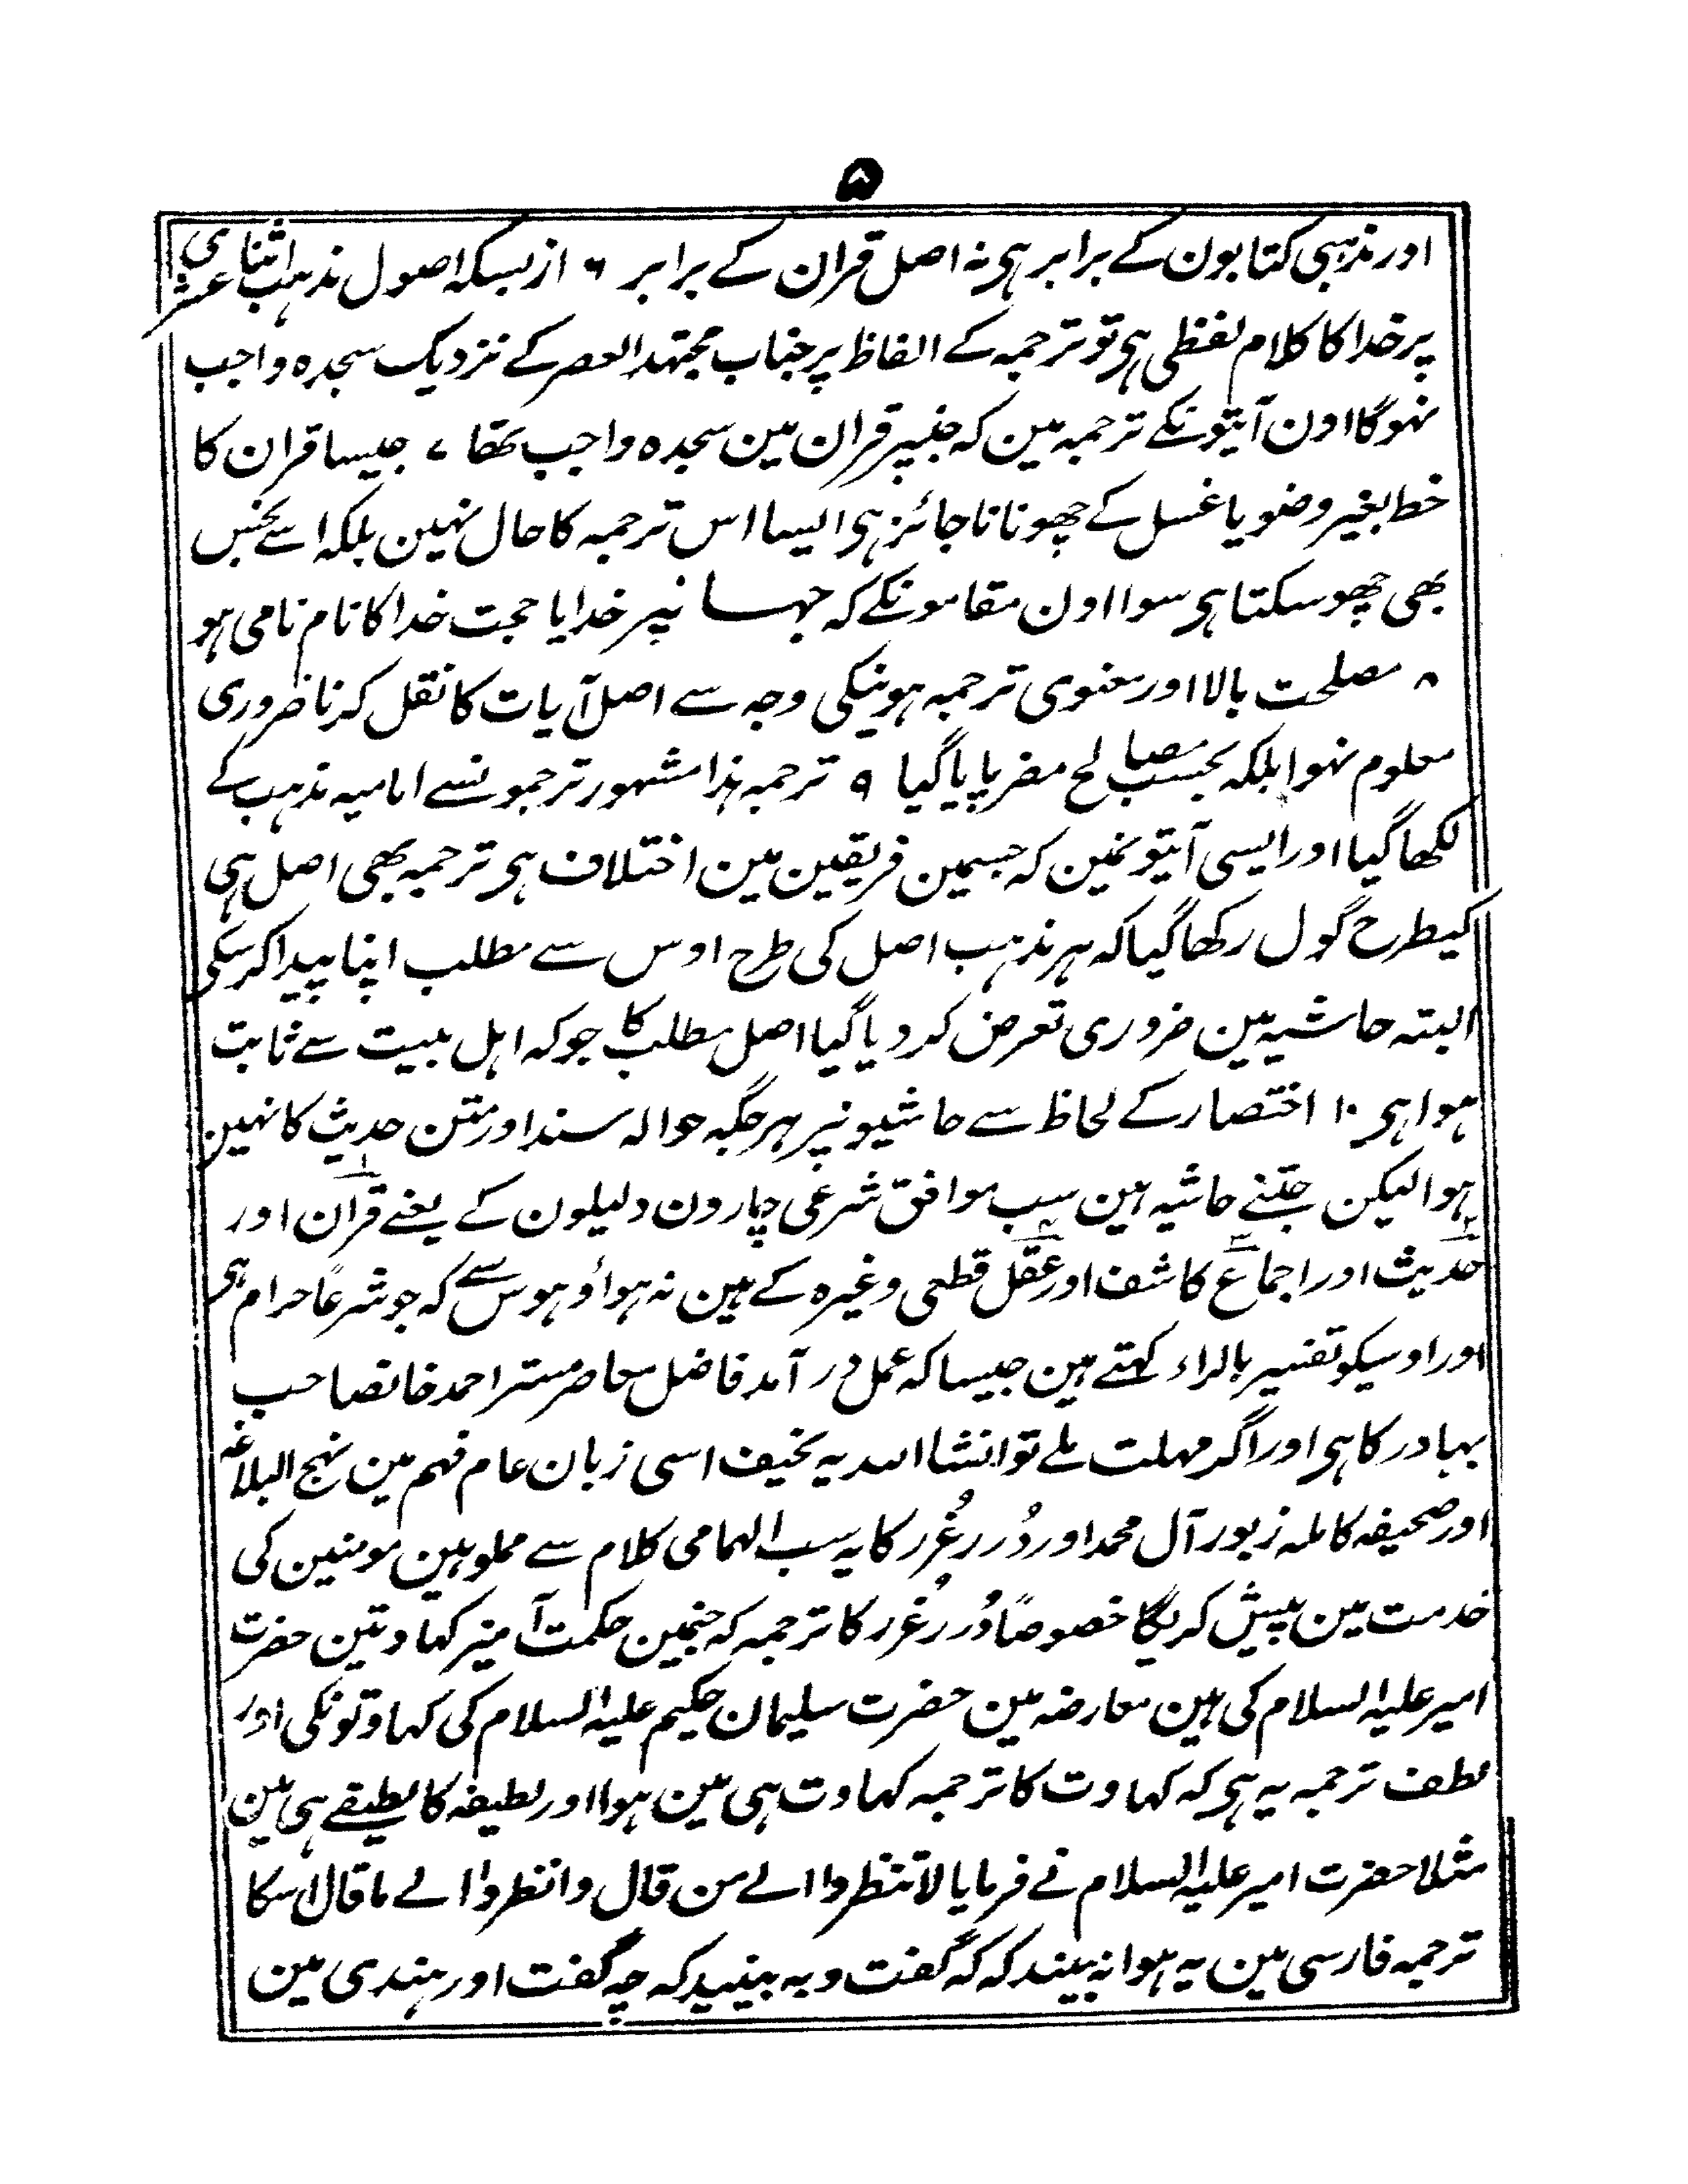 ۵
اور مذہبی کتابون کے برابر ہی نہ اصل قران کے برابر ۶ از بسکہ اصول مذہب اثنا عشری
پر خدا کا کلام لفظی ہی تو ترجمہ کے الفاظ پر جناب مجتہد العصر کے نزدیک سجدہ واجب
نہوگا اون آیتونکے ترجمہ مین کہ جنپر قران مین سجدہ واجب تھا ۷ جیسا قران کا
خط بغیر وضو یا غسل کے چھونا ناجائز ہی ایسا اس ترجمہ کا حال نہین بلکہ اسے نجس
بھی چھو سکتا ہی سوا اون مقامونکے کہ جہانپر خدا یا حجت خدا کا نام نامی ہو
۸ مصلحت بالا اور معنوی ترجمہ ہونیکی وجہ سے اصل آیات کا نقل کرنا ضروری
معلوم نہوا بلکہ بحسب مصالح مضر پایا گیا ۹ ترجمہ ہذا مشہور ترجمونسے امامیہ مذہب کے
لکھا گیا اور ایسی آیتونمین کہ جسمین فریقین مین اختلاف ہی ترجمہ بھی اصل ہی
کیطرح گول رکھا گیا کہ ہر مذہب اصل کی طرح اوس سے مطلب اپنا پیدا کر سکی
البتہ حاشیہ مین ضروری تعرض کر دیا گیا اصل مطلب کا جو کہ اہل بیت سے ثابت
ہوا ہی ۱۰ اختصار کے لحاظ سے حاشیونپر ہر جگہ حوالہ سند اور متن حدیث کا نہین
ہوا لیکن جتنے حاشیہ ہین سب موافق شرعی چارون دلیلون کے یعنے قران اور
حدیث اور اجماع کاشف اور عقل قطعی وغیرہ کے ہین نہ ہوأ و ہوس سے کہ جو شرعاً حرام ہی
اور اوسیکو تفسیر بالراء کہتے ہین جیسا کہ عمل در آمد فاضل معاصر مستر احمد خانصاحب
بہادر کا ہی اور اگر مہلت ملے تو انشا اللہ یہ نحیف اسی زبان عام فہم مین نہج البلاغہ
اور صحیفہ کاملہ زبور آل محمد اور دُرر رغُرر کا یہ سب الہامی کلام سے مملو ہین مومنین کی
خدمت مین پیش کریگا خصوصاً دُرر رغُرر کا ترجمہ کہ جنمین حکمت آمیز کہاوتین حضرت
امیر علیہ السلام کی ہین معارضہ مین حضرت سلیمان حکیم علیہ السلام کی کہاوتونکی اور
لطف ترجمہ یہ ہی کہ کہاوت کا ترجمہ کہاوت ہی مین ہوا اور لطیفہ کا لطیفے ہی مین
مثلا حضرت امیر علیہ السلام نے فرمایا لاتنظروا الے من قال وانظروا الے ما قال اسکا
ترجمہ فارسی مین یہ ہوا نہ بیند کہ کہ گفت و بہ بینید کہ چہ گفت اور ہندی مین